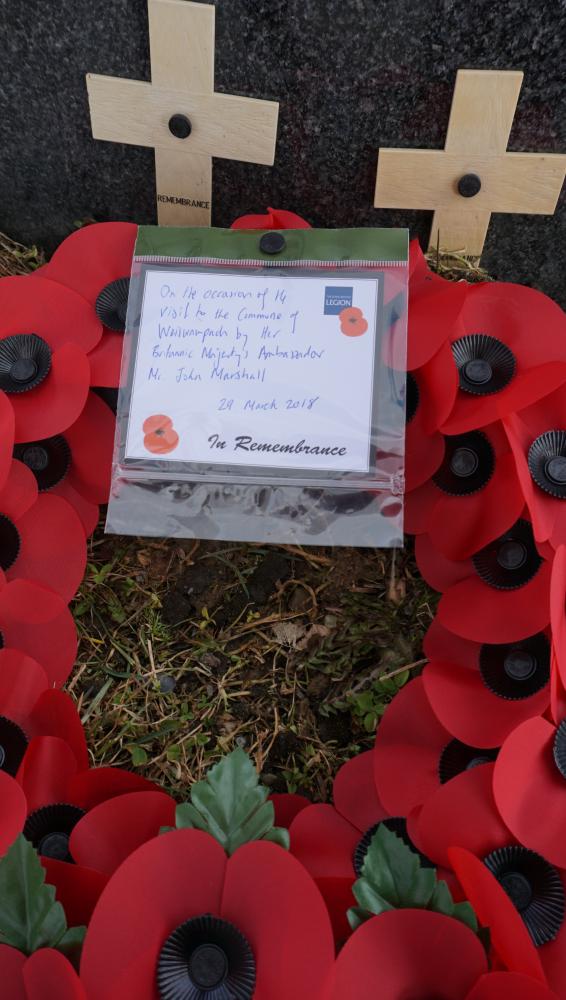 REMEMBRANCE
On the occasion of 14
Visit to the Commune of
Weiswampach by Her
Britannic Majesty's Ambassador
Mr. John Marshall
29 March 2018
LEGION
In Remembrance